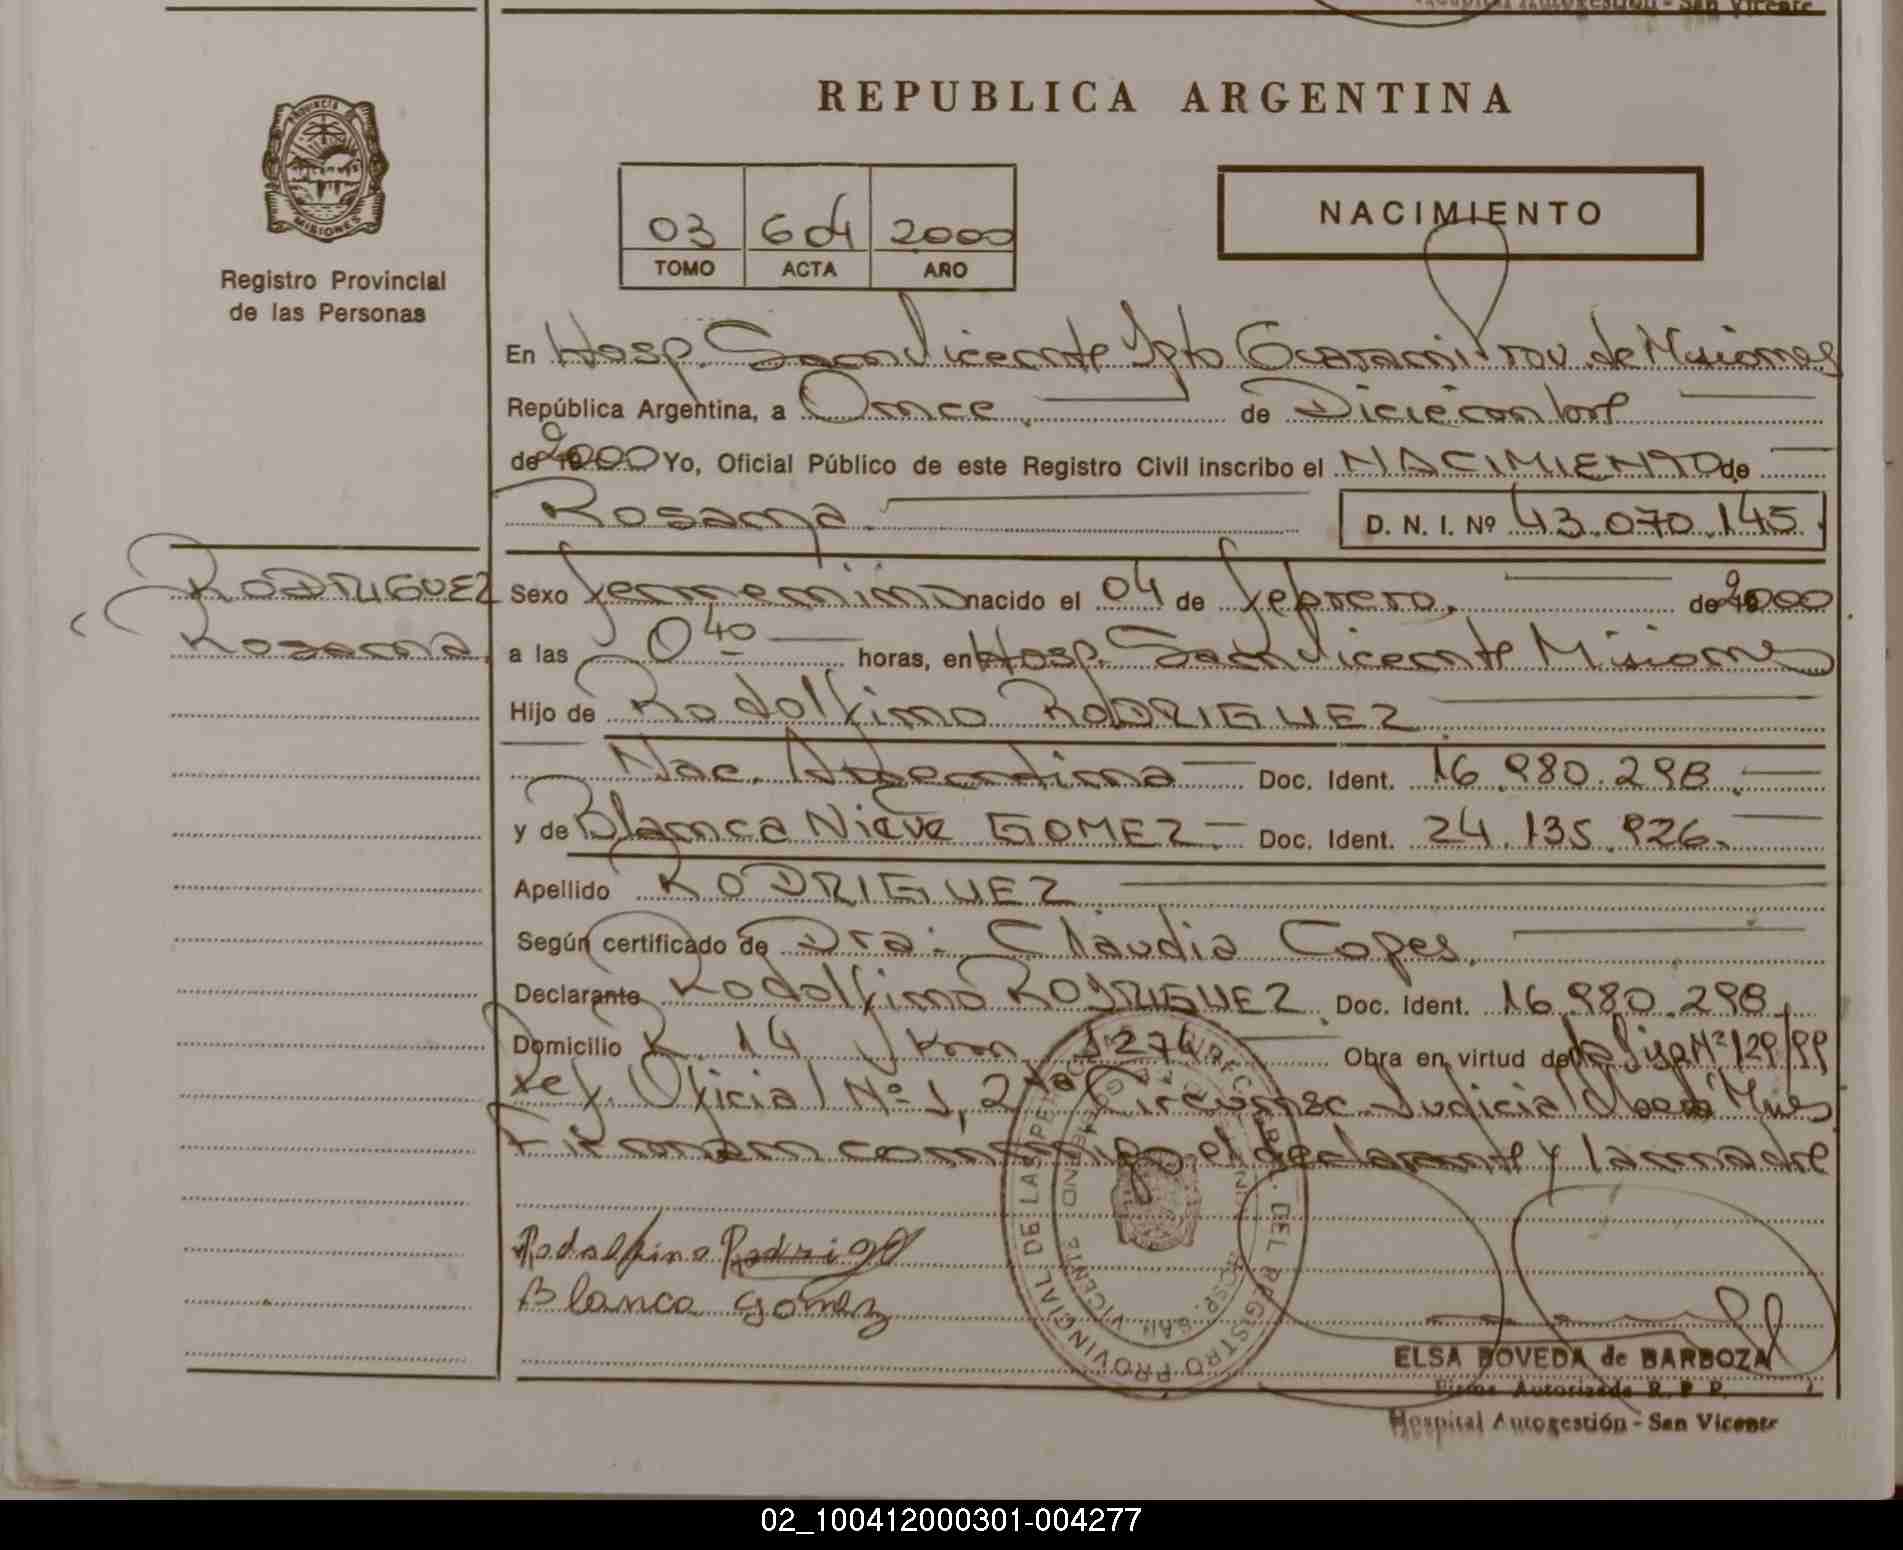 Hospital Autogestión - San Vicente
REPUBLICA ARGENTINA
PROVINCIA
MISIONES
Registro Provincial
de las Personas
03 604 2000
TOMO ACTA AÑO
NACIMIENTO
En Hosp. San Vicente Dpto Guarani Prov. de Misiones
República Argentina, a Once de Diciembre
de 2000 Yo, Oficial Público de este Registro Civil inscribo el NACIMIENTO de
Rosana D. N. I. Nº 43.070.145
RODRIGUEZ
Rosana
Sexo femenino nacido el 04 de febrero de 2000
a las 0 40 horas, en Hosp. San Vicente Misiones
Hijo de Rodolfino RODRIGUEZ
Nac. Argentina Doc. Ident. 16.980.298
y de Blanca Nieve GOMEZ Doc. Ident. 24.135.926
Apellido RODRIGUEZ
Según certificado de Dra: Claudia Copes.
Declarante Rodolfino RODRIGUEZ Doc. Ident. 16.980.298
Domicilio R. 14 km 1274 Obra en virtud de la Disp Nº 129/99
Def. Oficial Nº 1, 2da Circunsc. Judicial
Firman conmigo el declarante y la madre
Rodolfino
Blanca gomez
REGISTRO PROVINCIAL DE LAS
HOSP. SAN VICENTE
ELSA BOVEDA de BARBOZA
Firma Autorizada R. P. P.
Hospital Autogestión - San Vicente
02_100412000301-004277